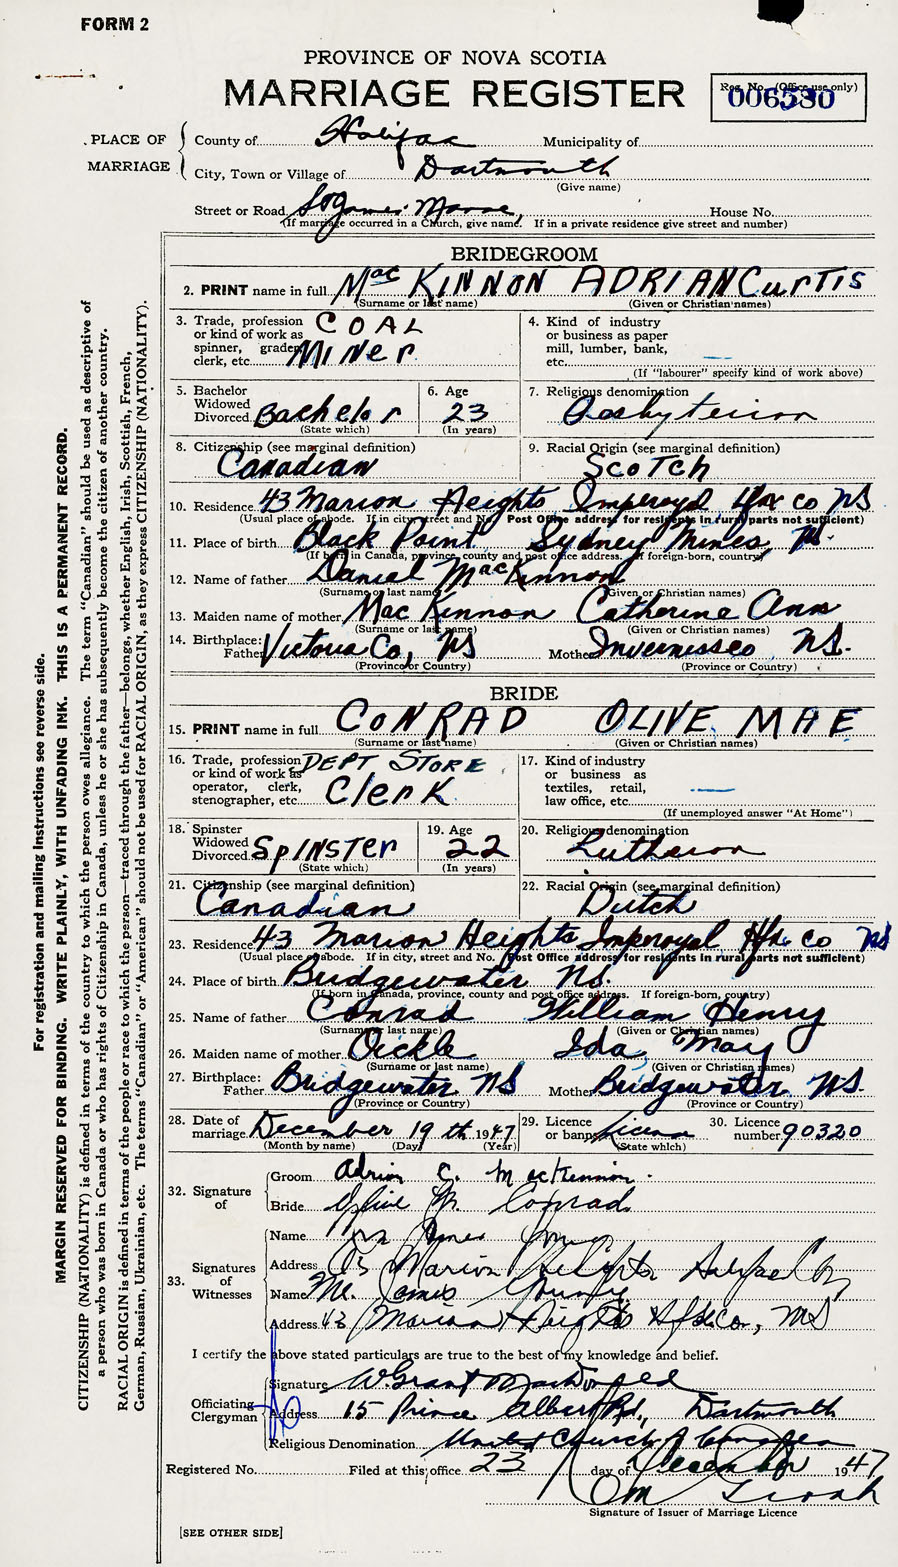 FORM 2
PROVINCE OF NOVA SCOTIA
MARRIAGE REGISTER
Reg. No. (Office use only)
006530
PLACE OF MARRIAGE
County of Halifax Municipality of
City, Town or Village of Dartmouth
(Give name)
Street or Road St James Manse, House No.
(If marriage occurred in a Church, give name. If in a private residence give street and number)
BRIDEGROOM
2. PRINT name in full MacKINNON ADRIAN CurTIS
(Surname or last name) (Given or Christian names)
3. Trade, profession or kind of work as spinner, grader, clerk, etc. COAL MINer
4. Kind of industry or business as paper mill, lumber, bank, etc. —
(If "labourer" specify kind of work above)
5. Bachelor Widowed Divorced Bachelor
(State which)
6. Age 23
(In years)
7. Religious denomination Presbyterian
8. Citizenship (see marginal definition) Canadian
9. Racial Origin (see marginal definition) Scotch
10. Residence 43 Marion Heights Imperoyal Hfx co NS
(Usual place of abode. If in city, street and No. Post Office address for residents in rural parts not sufficient)
11. Place of birth Black Point Sydney Mines, NS.
(If born in Canada, province, county and post office address. If foreign-born, country)
12. Name of father Daniel MacKinnon
(Surname or last name) (Given or Christian names)
13. Maiden name of mother MacKinnon Catherine Ann
(Surname or last name) (Given or Christian names)
14. Birthplace: Father Victoria Co, NS Mother Inverness co NS.
(Province or Country) (Province or Country)
BRIDE
15. PRINT name in full CONRAD OLIVE MAE
(Surname or last name) (Given or Christian names)
16. Trade, profession or kind of work as operator, clerk, stenographer, etc. DEPT STORE Clerk
17. Kind of industry or business as textiles, retail, law office, etc. —
(If unemployed answer "At Home")
18. Spinster Widowed Divorced SpINSTer
(State which)
19. Age 22
(In years)
20. Religious denomination Lutheran
21. Citizenship (see marginal definition) Canadian
22. Racial Origin (see marginal definition) Dutch
23. Residence 43 Marion Heights Imperoyal Hfx co NS
(Usual place of abode. If in city, street and No. Post Office address for residents in rural parts not sufficient)
24. Place of birth Bridgewater NS.
(If born in Canada, province, county and post office address. If foreign-born, country)
25. Name of father Conrad William Henry
(Surname or last name) (Given or Christian names)
26. Maiden name of mother Oickle Ida May
(Surname or last name) (Given or Christian names)
27. Birthplace: Father Bridgewater NS Mother Bridgewater NS.
(Province or Country) (Province or Country)
28. Date of marriage December 19th 1947
(Month by name) (Day) (Year)
29. Licence or banns License
(State which)
30. Licence number 90320
32. Signature of
Groom Adrian C. MacKinnon.
Bride Olive M. Conrad
33. Signatures of Witnesses
Name James Young
Address 43 Marion Heights Halifax Co
Name James Young
Address 43 Marion Heights Hfx Co, NS
I certify the above stated particulars are true to the best of my knowledge and belief.
Officiating Clergyman
Signature W. Grant MacDonald
Address 15 Prince Albert Rd., Dartmouth
Religious Denomination United Church of Canada
Registered No. Filed at this office 23 day of December 1947
Signature of Issuer of Marriage Licence
[SEE OTHER SIDE]
For registration and mailing instructions see reverse side.
MARGIN RESERVED FOR BINDING. WRITE PLAINLY, WITH UNFADING INK. THIS IS A PERMANENT RECORD.
CITIZENSHIP (NATIONALITY) is defined in terms of the country to which the person owes allegiance. The term "Canadian" should be used as descriptive of
a person who was born in Canada or who has rights of Citizenship in Canada, unless he or she has subsequently become the citizen of another country.
RACIAL ORIGIN is defined in terms of the people or race to which the person—traced through the father—belongs, whether English, Irish, Scottish, French,
German, Russian, Ukrainian, etc. The terms "Canadian" or "American" should not be used for RACIAL ORIGIN, as they express CITIZENSHIP (NATIONALITY).